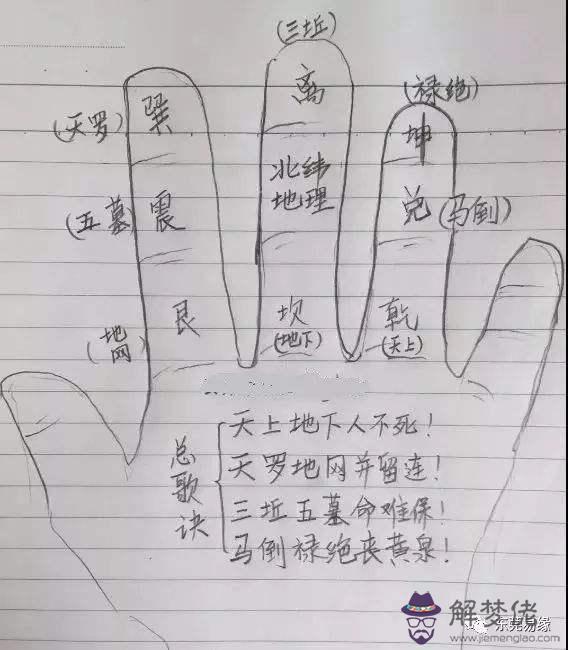 (三坵)
离
(禄绝)
坤
(天罗)
巽
北纬
地理
兑
(马倒)
(五墓)
震
艮
(地网)
坎
(地下)
乾
(天上)
总歌诀
天上地下人不死!
天罗地网并留连!
三坵五墓命难保!
马倒禄绝丧黄泉!
解梦佬
东莞易缘
www.jiemenglao.com